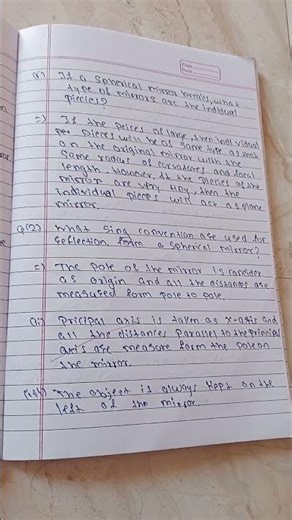 Page
Date
(8) If a spherical mirror breaks, what
type of mirrors are the individual
pieces?
=) If the peices of large, then individual
pieces will be of same type as that
on the original mirror with the
same radius of curvature and focal
length. However, if the pieces of the
mirror are very tiny, then the
individual pieces will act as plane
mirror.
Q(2) What sing convention are used for
reflection form a spherical mirror?
=) The pole of the mirror is consider
as origin and all the distances are
measured form pole to pole.
(ii) Pricipal axis is taken as x-axis and
all the distances parallel to the principal
axis are measure form the pole on
the mirror.
The object is always kept on the
left of the mirror.